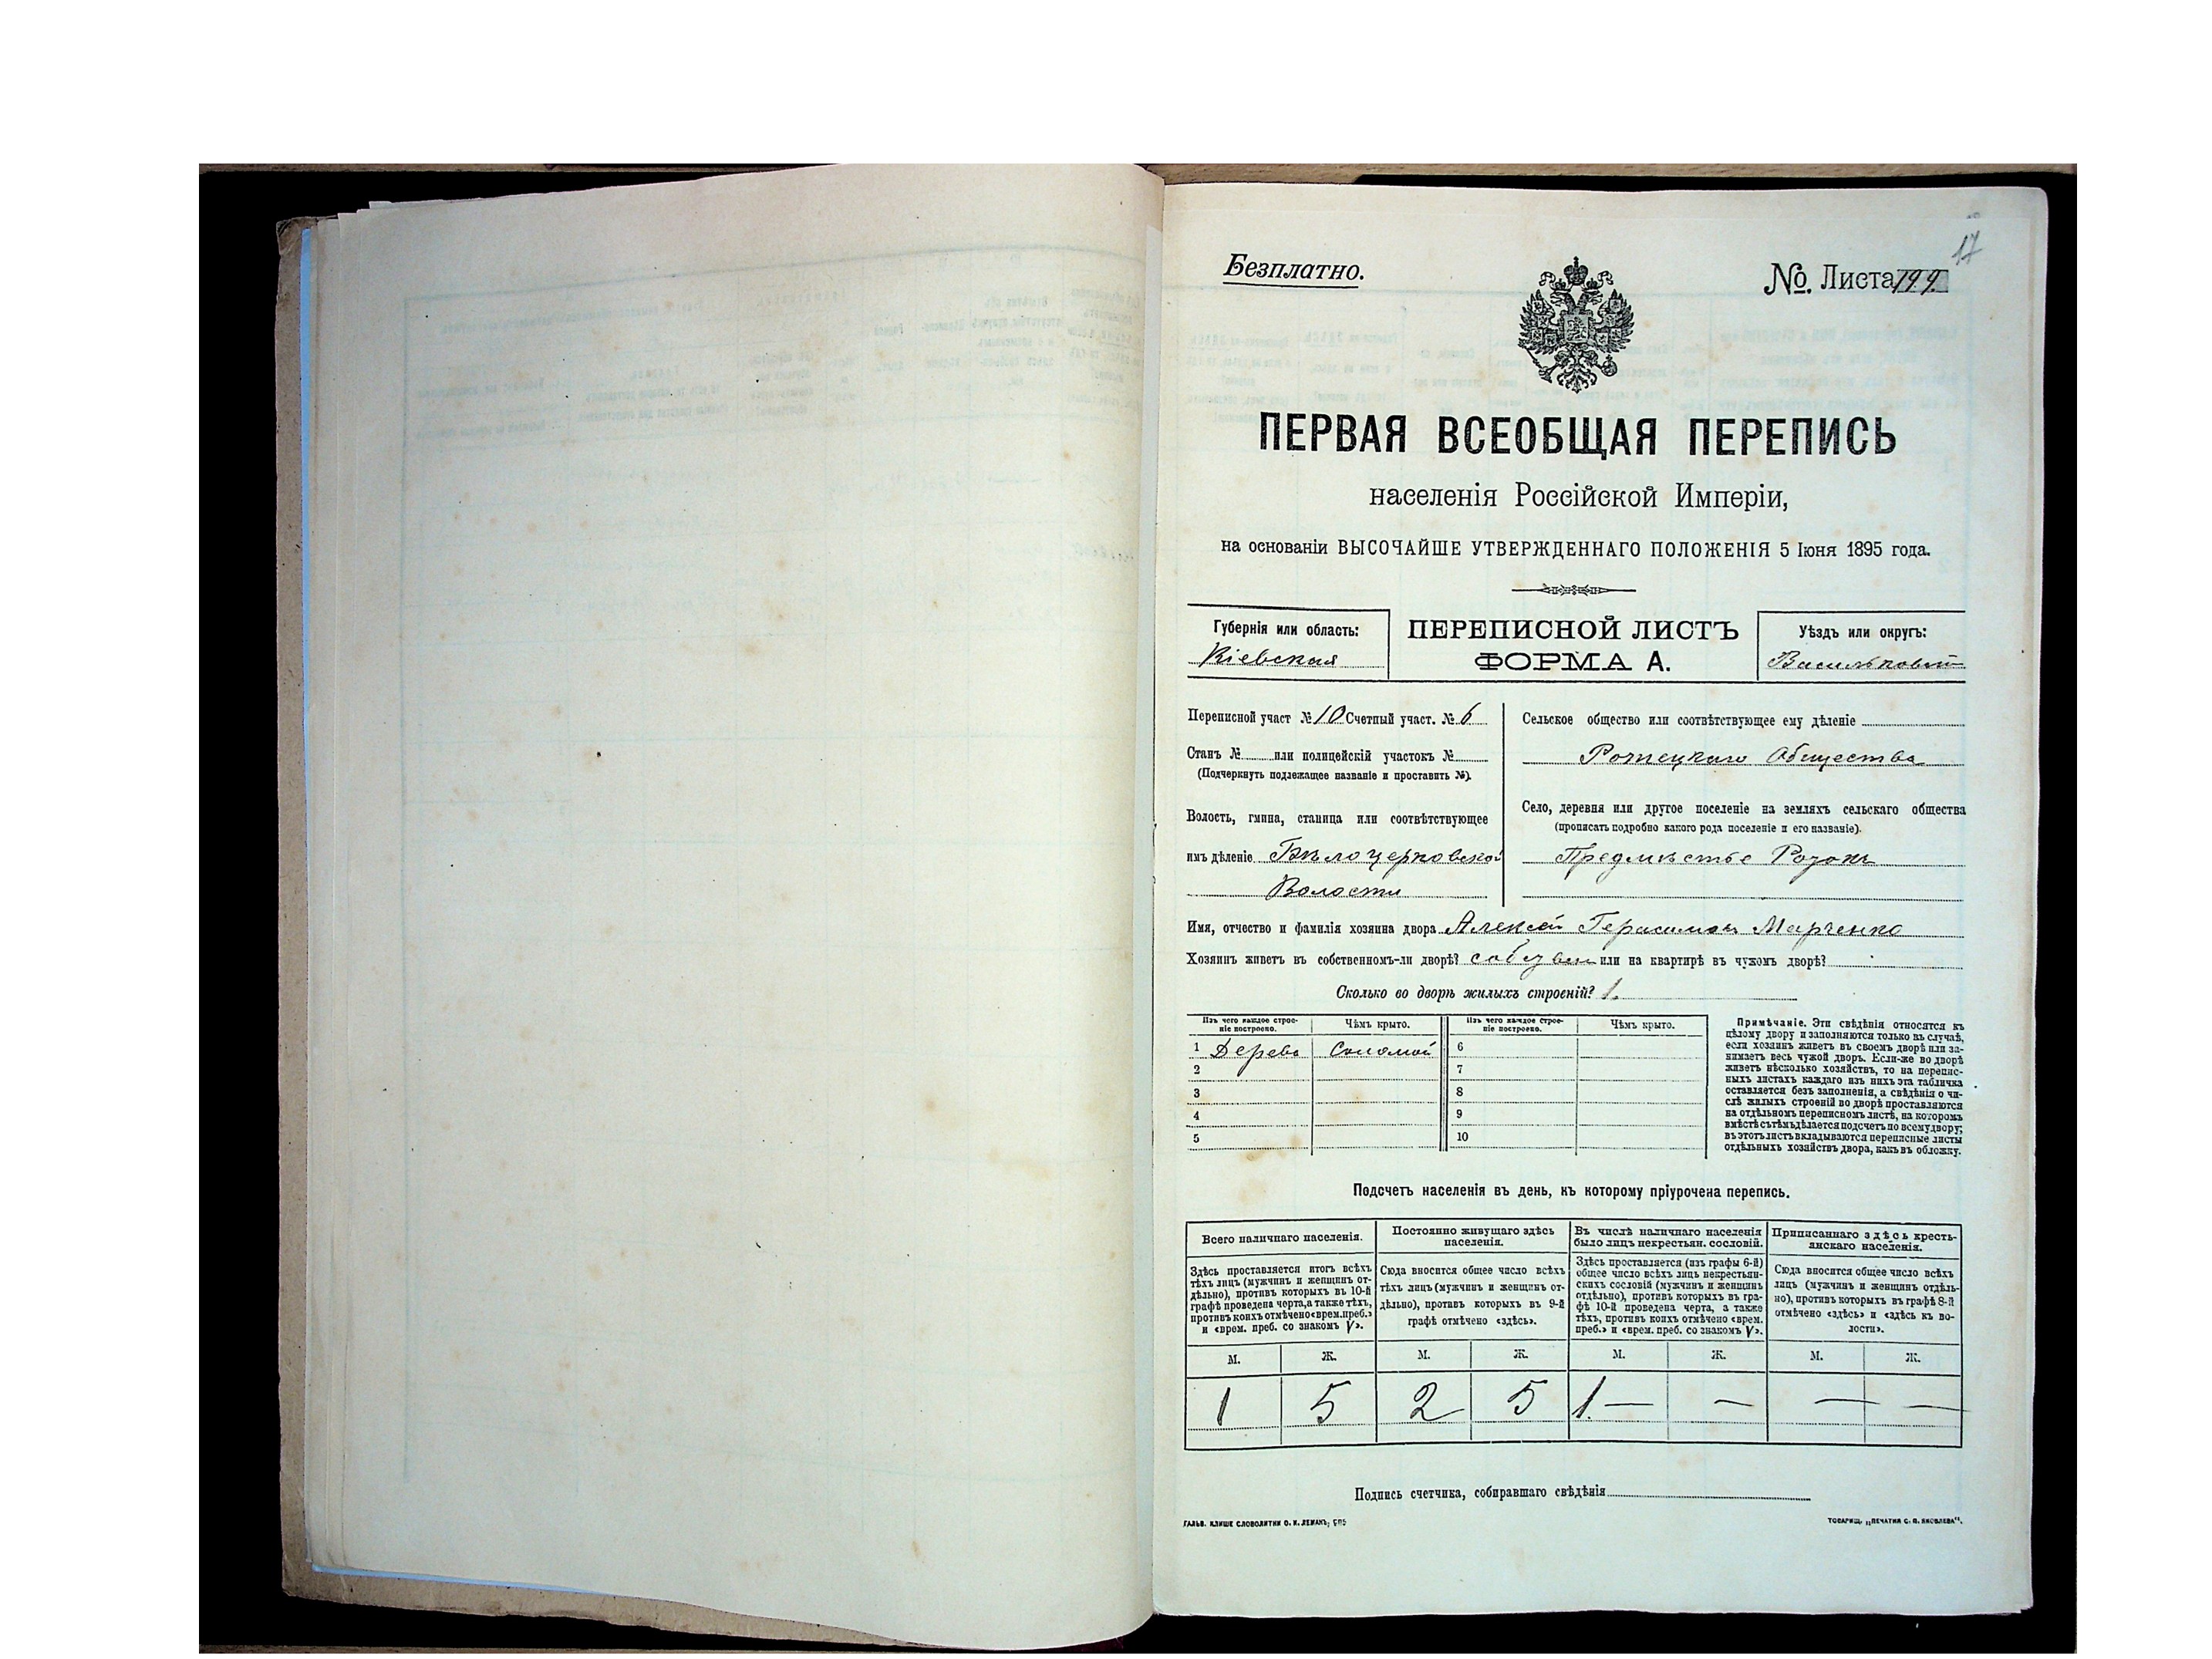 17
Безплатно.
№. Листа 199.
ПЕРВАЯ ВСЕОБЩАЯ ПЕРЕПИСЬ
населенія Россійской Имперіи,
на основаніи ВЫСОЧАЙШЕ УТВЕРЖДЕННАГО ПОЛОЖЕНІЯ 5 Іюня 1895 года.
Губернія или область:
Кіевская
ПЕРЕПИСНОЙ ЛИСТЪ
ФОРМА А.
Уѣздъ или округъ:
Васильковскій
Переписной участ №10 Счетный участ. № 6
Станъ № или полицейскій участокъ №
(Подчеркнуть подлежащее названіе и проставить №).
Волость, гмина, станица или соотвѣтствующее
имъ дѣленіе Бѣлоцерковской
Волости
Сельское общество или соотвѣтствующее ему дѣленіе
Общества
Село, деревня или другое поселеніе на земляхъ сельскаго общества
(прописать подробно какого рода поселеніе и его названіе).
Предмѣстье
Имя, отчество и фамилія хозяина двора Алексей Герасимовъ Марченко
Хозяинъ живетъ въ собственномъ-ли дворѣ? или на квартирѣ въ чужомъ дворѣ?
Сколько во дворѣ жилыхъ строеній? 1.
Изъ чего каждое строе-
ніе построено.
Чѣмъ крыто.
Изъ чего каждое строе-
ніе построено.
Чѣмъ крыто.
1 Дерева Соломой 6
2 7
3 8
4 9
5 10
Примѣчаніе. Эти свѣдѣнія относятся къ
цѣлому двору и заполняются только въ случаѣ,
если хозяинъ живетъ въ своемъ дворѣ или за-
нимаетъ весь чужой дворъ. Если-же во дворѣ
живетъ нѣсколько хозяйствъ, то на перепис-
ныхъ листахъ каждаго изъ нихъ эта табличка
оставляется безъ заполненія, а свѣдѣнія о чи-
слѣ жилыхъ строеній во дворѣ проставляются
на отдѣльномъ переписномъ листѣ, на которомъ
вмѣстѣ съ тѣмъ дѣлается подсчетъ по всему двору;
въ этотъ листъ вкладываются переписные листы
отдѣльныхъ хозяйствъ двора, какъ въ обложку.
Подсчетъ населенія въ день, къ которому пріурочена перепись.
Всего наличнаго населенія.
Здѣсь проставляется итогъ всѣхъ
тѣхъ лицъ (мужчинъ и женщинъ от-
дѣльно), противъ которыхъ въ 10-й
графѣ проведена черта, а также тѣхъ,
противъ коихъ отмѣчено «врем. преб.»
и «врем. преб. со знакомъ V».
Постоянно живущаго здѣсь
населенія.
Сюда вносится общее число всѣхъ
тѣхъ лицъ (мужчинъ и женщинъ от-
дѣльно), противъ которыхъ въ 9-й
графѣ отмѣчено «здѣсь».
Въ числѣ наличнаго населенія
было лицъ некрестьян. сословій.
Здѣсь проставляется (изъ графы 6-й)
общее число всѣхъ лицъ некрестьян-
скихъ сословій (мужчинъ и женщинъ
отдѣльно), противъ которыхъ въ гра-
фѣ 10-й проведена черта, а также
тѣхъ, противъ коихъ отмѣчено «врем.
преб.» и «врем. преб. со знакомъ V».
Приписаннаго здѣсь кресть-
янскаго населенія.
Сюда вносится общее число всѣхъ
лицъ (мужчинъ и женщинъ отдѣль-
но), противъ которыхъ въ графѣ 8-й
отмѣчено «здѣсь» и «здѣсь къ во-
лости».
М. Ж. М. Ж. М. Ж. М. Ж.
1 5 2 5 1. — — — —
Подпись счетчика, собиравшаго свѣдѣнія
ГАЛЬВ. КЛИШЕ СЛОВОЛИТНИ О. И. ЛЕМАНЪ, СПБ
ТОВАРИЩ. „ПЕЧАТНЯ С. П. ЯКОВЛЕВА“.